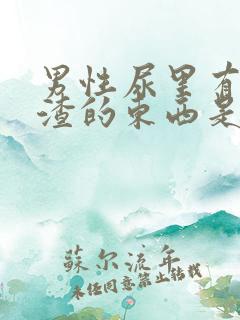 男性尿里有
渣的东西是
蘇尔流年
未经同意禁止转载